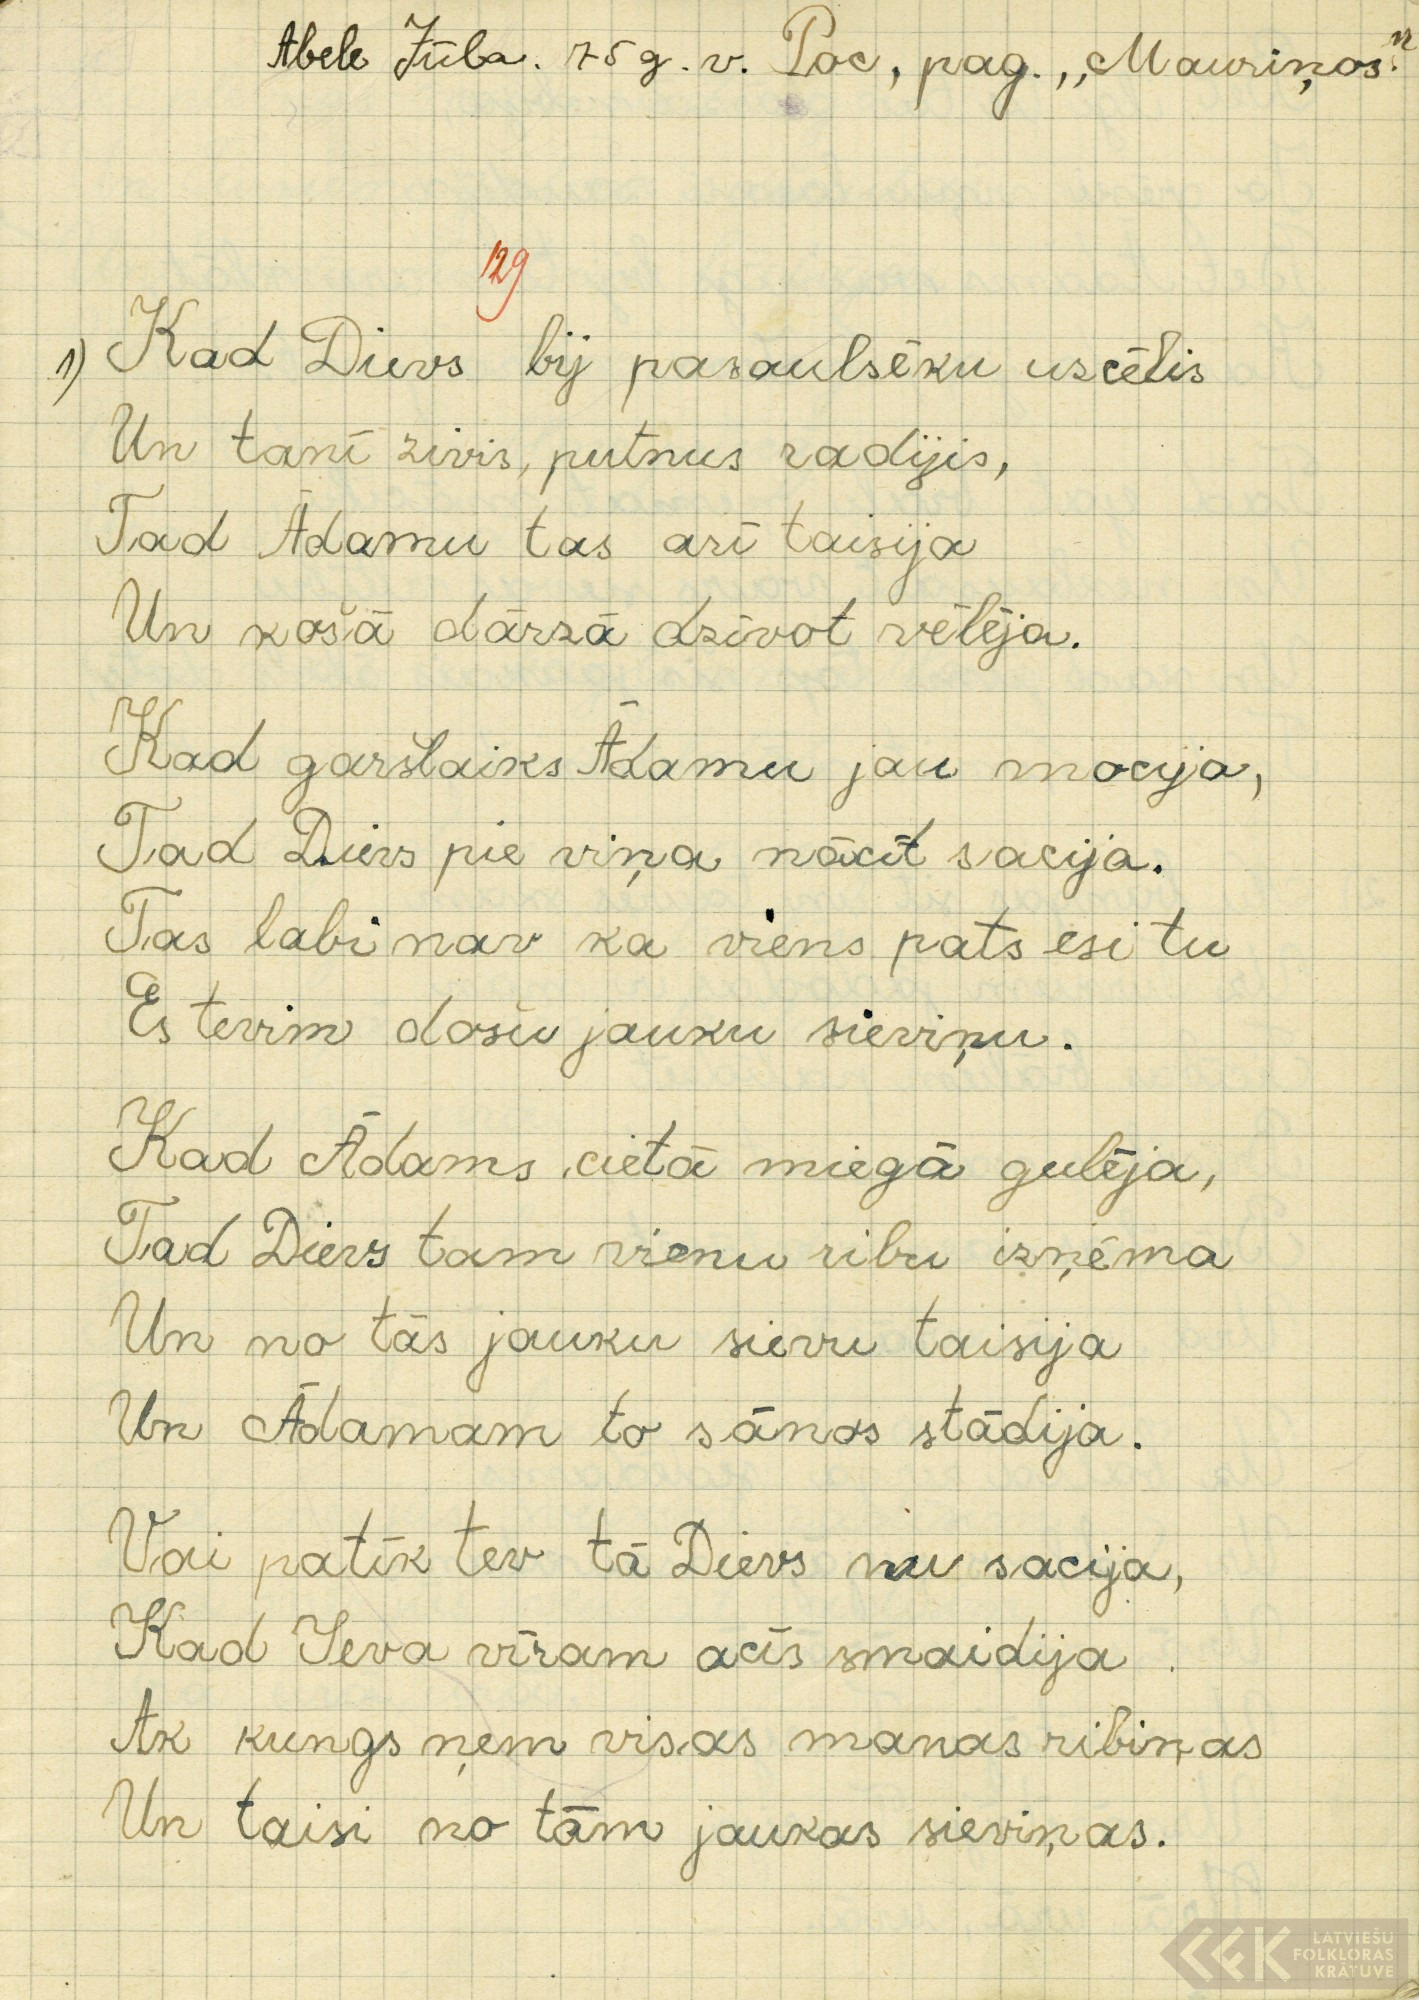 Abele Jūla. 75 g. v. Poc, pag., „Mauriņos"
129
1) Kad Dievs bij pasaulsēku uscēlis
Un tanī zivis, putnus radijis,
Tad Ādamu tas arī taisija
Un košā dārzā dzīvot vēlēja.
Kad garšlaiks Ādamu jau mocija,
Tad Dievs pie viņa nācīt sacija.
Tas labi nav ka viens pats esi tu
Es tevim došu jauku sieviņu.
Kad Ādams cietā miegā gulēja,
Tad Dievs tam vienu ribu izņēma
Un no tās jauku sievu taisija
Un Ādamam to sānos stādija.
Vai patīk tev tā Dievs nu sacija,
Kad Ieva vīram acīs smaidija
Ak kungs ņem visas manas ribiņas
Un taisi no tām jaukas sieviņas.
LATVIEŠU
FOLKLORAS
KRĀTUVE